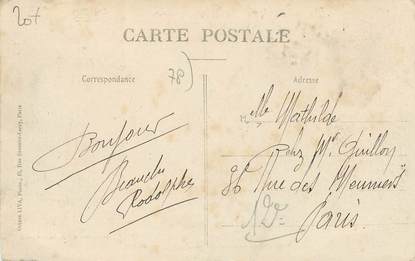 20+
CARTE POSTALE
Correspondance
78)
Adresse
Bonjour
Rodolphe
Mlle Mathilde
Chez Mr Guillou
86 Rue des Meuniers
Paris